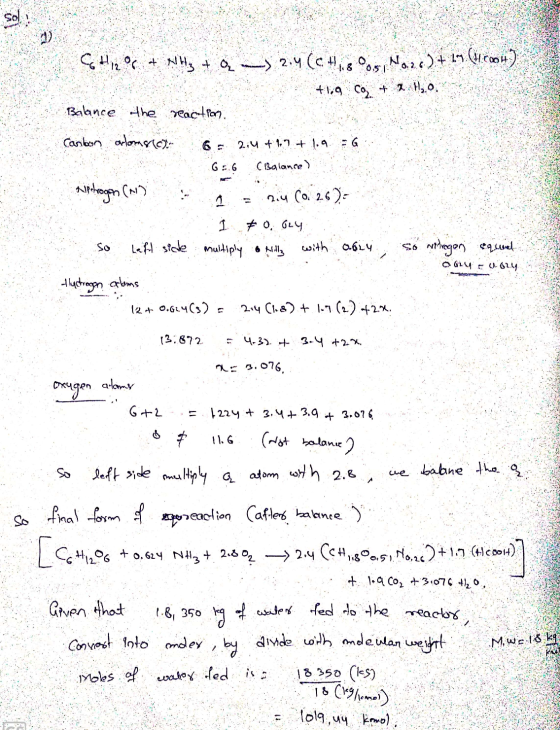 Sol:
1)
C6H12O6 + NH3 + O2 → 2.4 (CH1.8 O0.51 N0.26) + 1.7 (HCOOH)
+1.9 CO2 + x H2O.
Balance the reaction.
Carbon atoms(c):- 6 = 2.4 + 1.7 + 1.9 = 6
6=6 (Balance)
Nitrogen (N) :- 1 = 2.4 (0.26)=
1 ≠ 0.624
So left side multiply NH3 with 0.624, so nitrogen equal
0.624 = 0.624
Hydrogen atoms
12 + 0.624(3) = 2.4 (1.8) + 1.7 (2) +2x.
13.872 = 4.32 + 3.4 +2x
x = 3.076.
Oxygen atoms
6+2 = 1.224 + 3.4 + 3.9 + 3.076
8 ≠ 11.6 (Not balance)
So left side multiply O2 atom with 2.8, we balane the O2
So final form of reaction (after balance)
[C6H12O6 + 0.624 NH3 + 2.8 O2 → 2.4 (CH1.8O0.51 N0.26) + 1.7 (HCOOH)]
+ 1.9 CO2 + 3.076 H2O.
Given that 18,350 kg of water fed to the reactor,
Convert into moles, by divide with molecular weight M.W = 18 kg
moles of water fed is = 18350 (kg)
18 (kg/kmol)
= 1019.44 kmol.